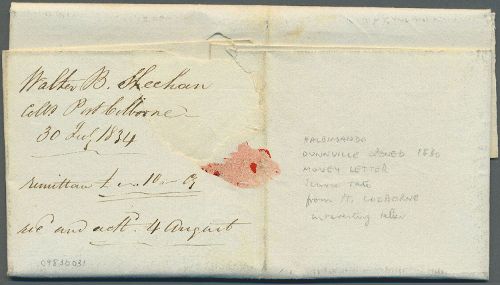 Walter B. Sheehan
Collr Port Colborne
30 July 1834
remittan £
red and ackd. 4 August
09830031
HALDIMAND
DUNNVILLE OPENED 1830
MONEY LETTER
rate
from Pt. COLBORNE
interesting letter